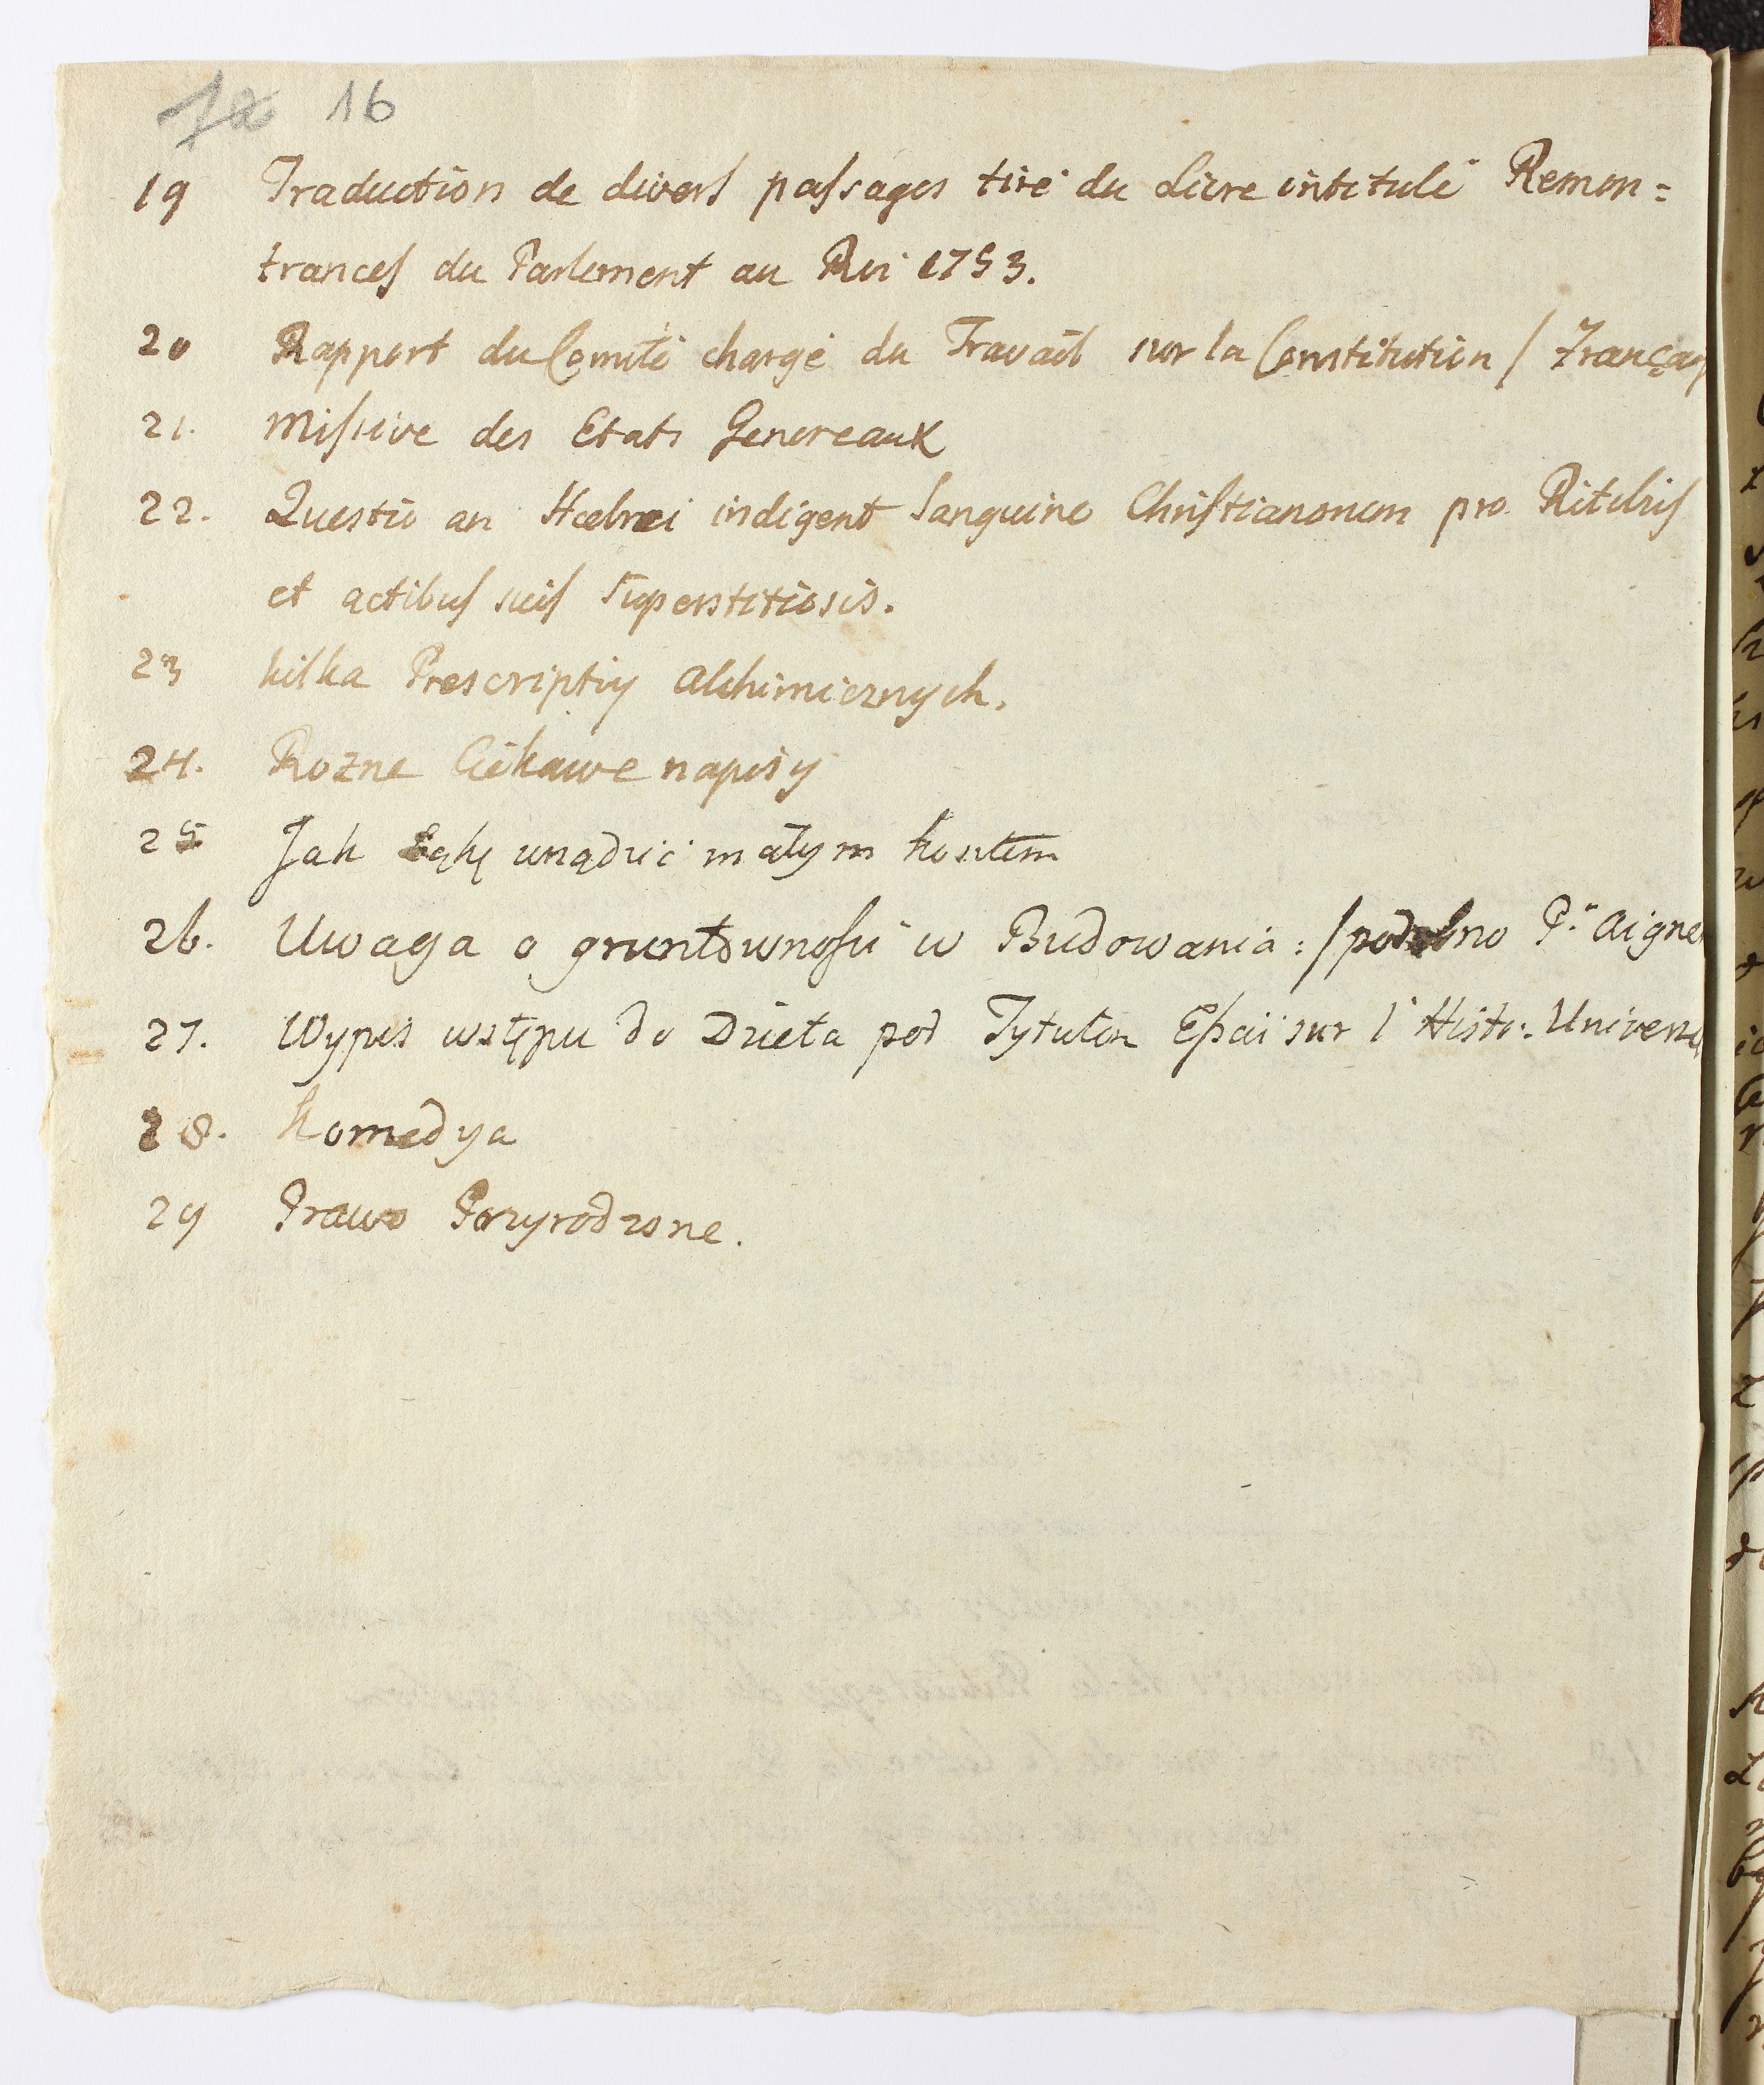 16
19 Traduction de divers passages tiré du Livre intitulé Remon=
trances du Parlement au Roi 1753.
20 Rapport du Comité chargé du Travail sur la Constitution / Françay
21. Missive des Etats Genereaux
22. Questio an Haebraei indigent Sanguine Christianorum pro Ritibus
et actibus suis Superstitiosis.
23 kilka Prescriptiy Alchimicznych.
24. Rozne Ciekawe napisy
25 Jak Łąkę urządzić małym kosztem
26. Uwaga o gruntownosci w Budowania :/podobno P. Aigne
27. Wypis wstępu do Dzieła pod Tytułem Essai sur l'Histo: Univers
28. Komedya
29 Prawo Przyrodzone.